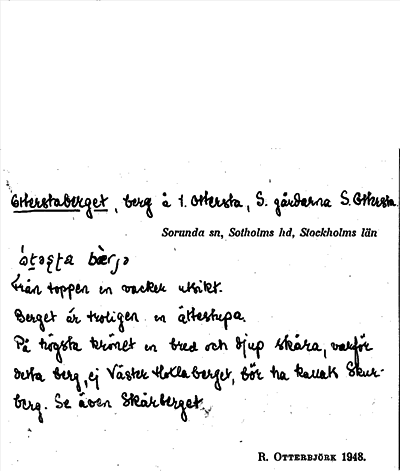 Otterstaberget, berg å t. Ottersta, S. gårdarna S. Ottersta
Sorunda sn, Sotholms hd, Stockholms län
Från toppen en vacker utsikt.
Berget är troligen en ättestupa.
På högsta krönet en bred och djup skåra, varför
detta berg, ej Väster Hoklaberget, bör ha kallats Skur-
berg. Se även Skärberget
R. OTTERBJÖRK 1948.